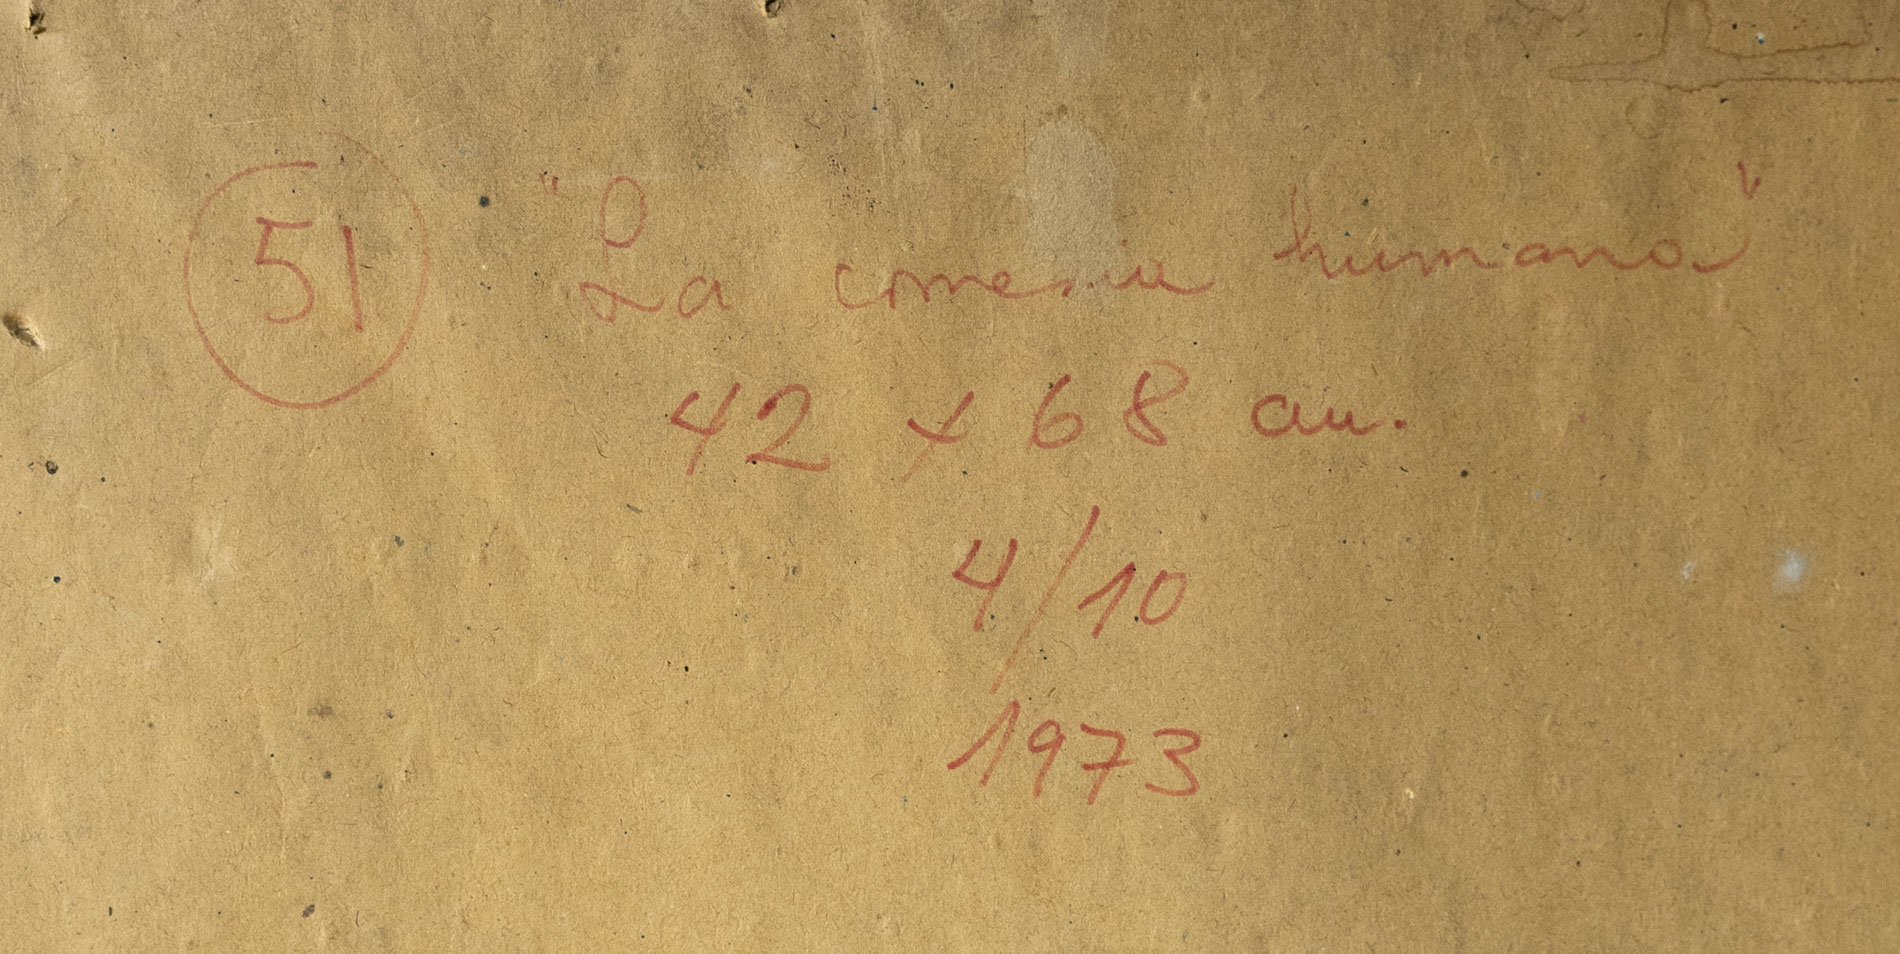 51 "La comedia humana"
42 x 68 cm.
4/10
1973